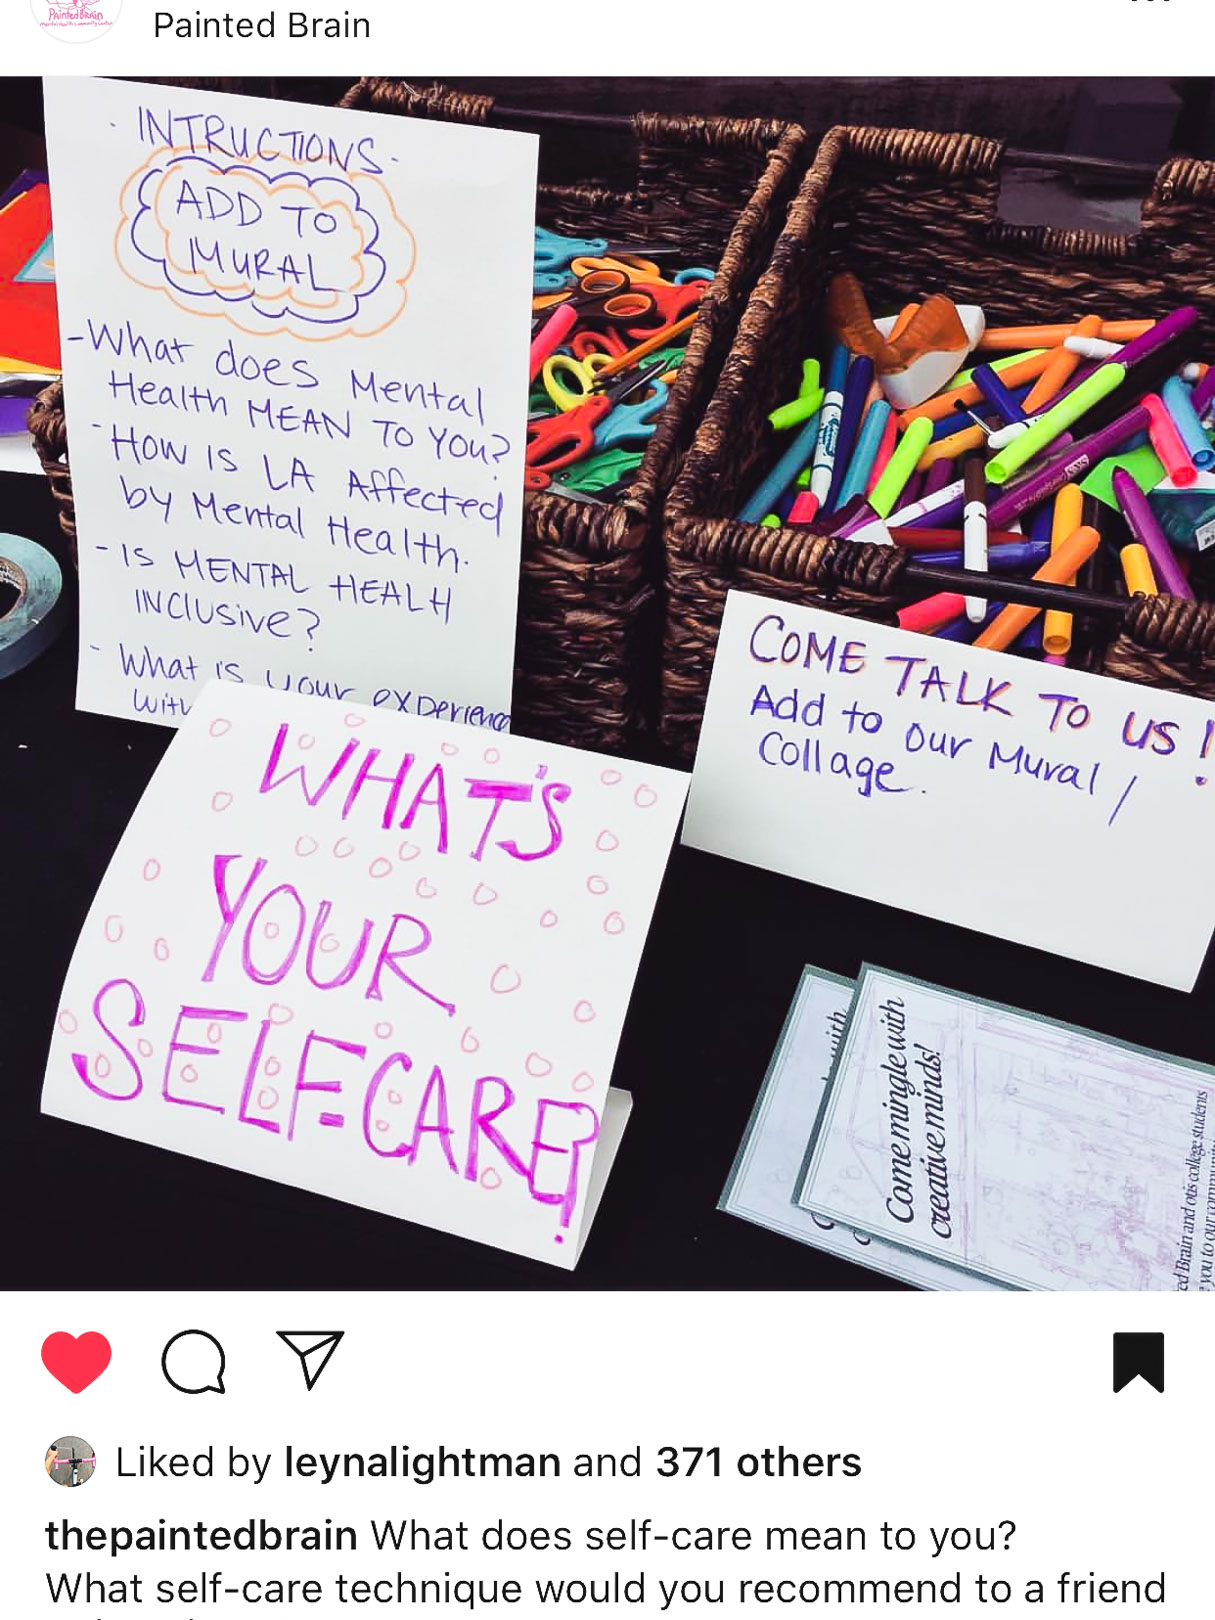 Painted Brain
Painted Brain
INTRUCTIONS
ADD TO
MURAL
-What does Mental
Health MEAN TO YOU?
-HOW IS LA Affected
by Mental Health.
-IS MENTAL HEALH
INCLUSIVE?
- What is your experience
with
WHAT'S
YOUR
SELF-CARE?!
COME TALK TO US!
Add to our Mural /
Collage.
with
Come mingle with
creative minds!
Brain and otis college students
you to our
Liked by leynalightman and 371 others
thepaintedbrain What does self-care mean to you?
What self-care technique would you recommend to a friend